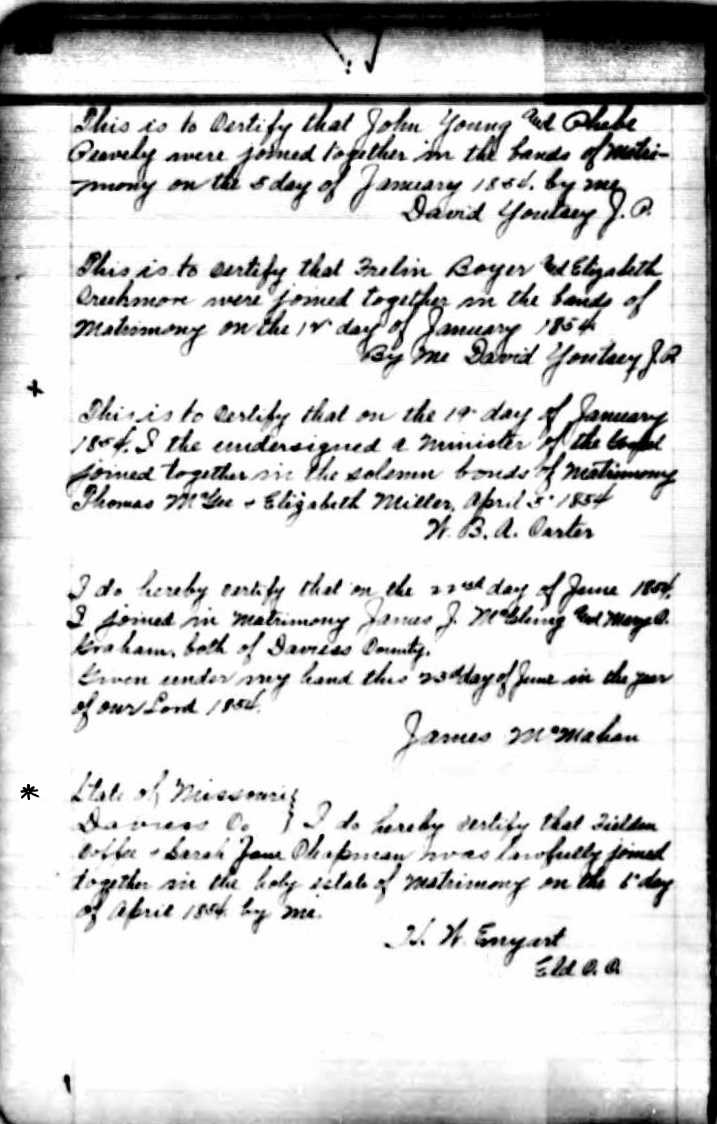 This is to Certify that John Young and Phebe
Peavely were joined together in the bands of Matri-
mony on the 5 day of January 1854. by me
David Youtsey J. P.
This is to Certify that Frelin Boyer and Elizabeth
Creekmore were joined together in the bands of
Matrimony on the 12 day of January 1854
By Me David Youtsey J. P.
This is to Certify that on the 19 day of January
1854. I the undersigned a Minister of the Gospel
joined together in the solemn bonds of Matrimony
Thomas McGee + Elizabeth Miller. April 5 1854
W. B. A. Carter
I do hereby certify that on the 22nd day of June 1854,
I joined in Matrimony James J. and Mary
Graham, both of Daviess County.
Given under my hand this 23d day of June in the year
of our Lord 1854.
James McMahan
* State of Missouri }
Daviess Co } I do hereby certify that Fielden
Coffee + Sarah Jane Chapman was lawfully joined
together in the holy estate of Matrimony on the 6 day
of April 1854 by me.
H. W. Enyart
Eld